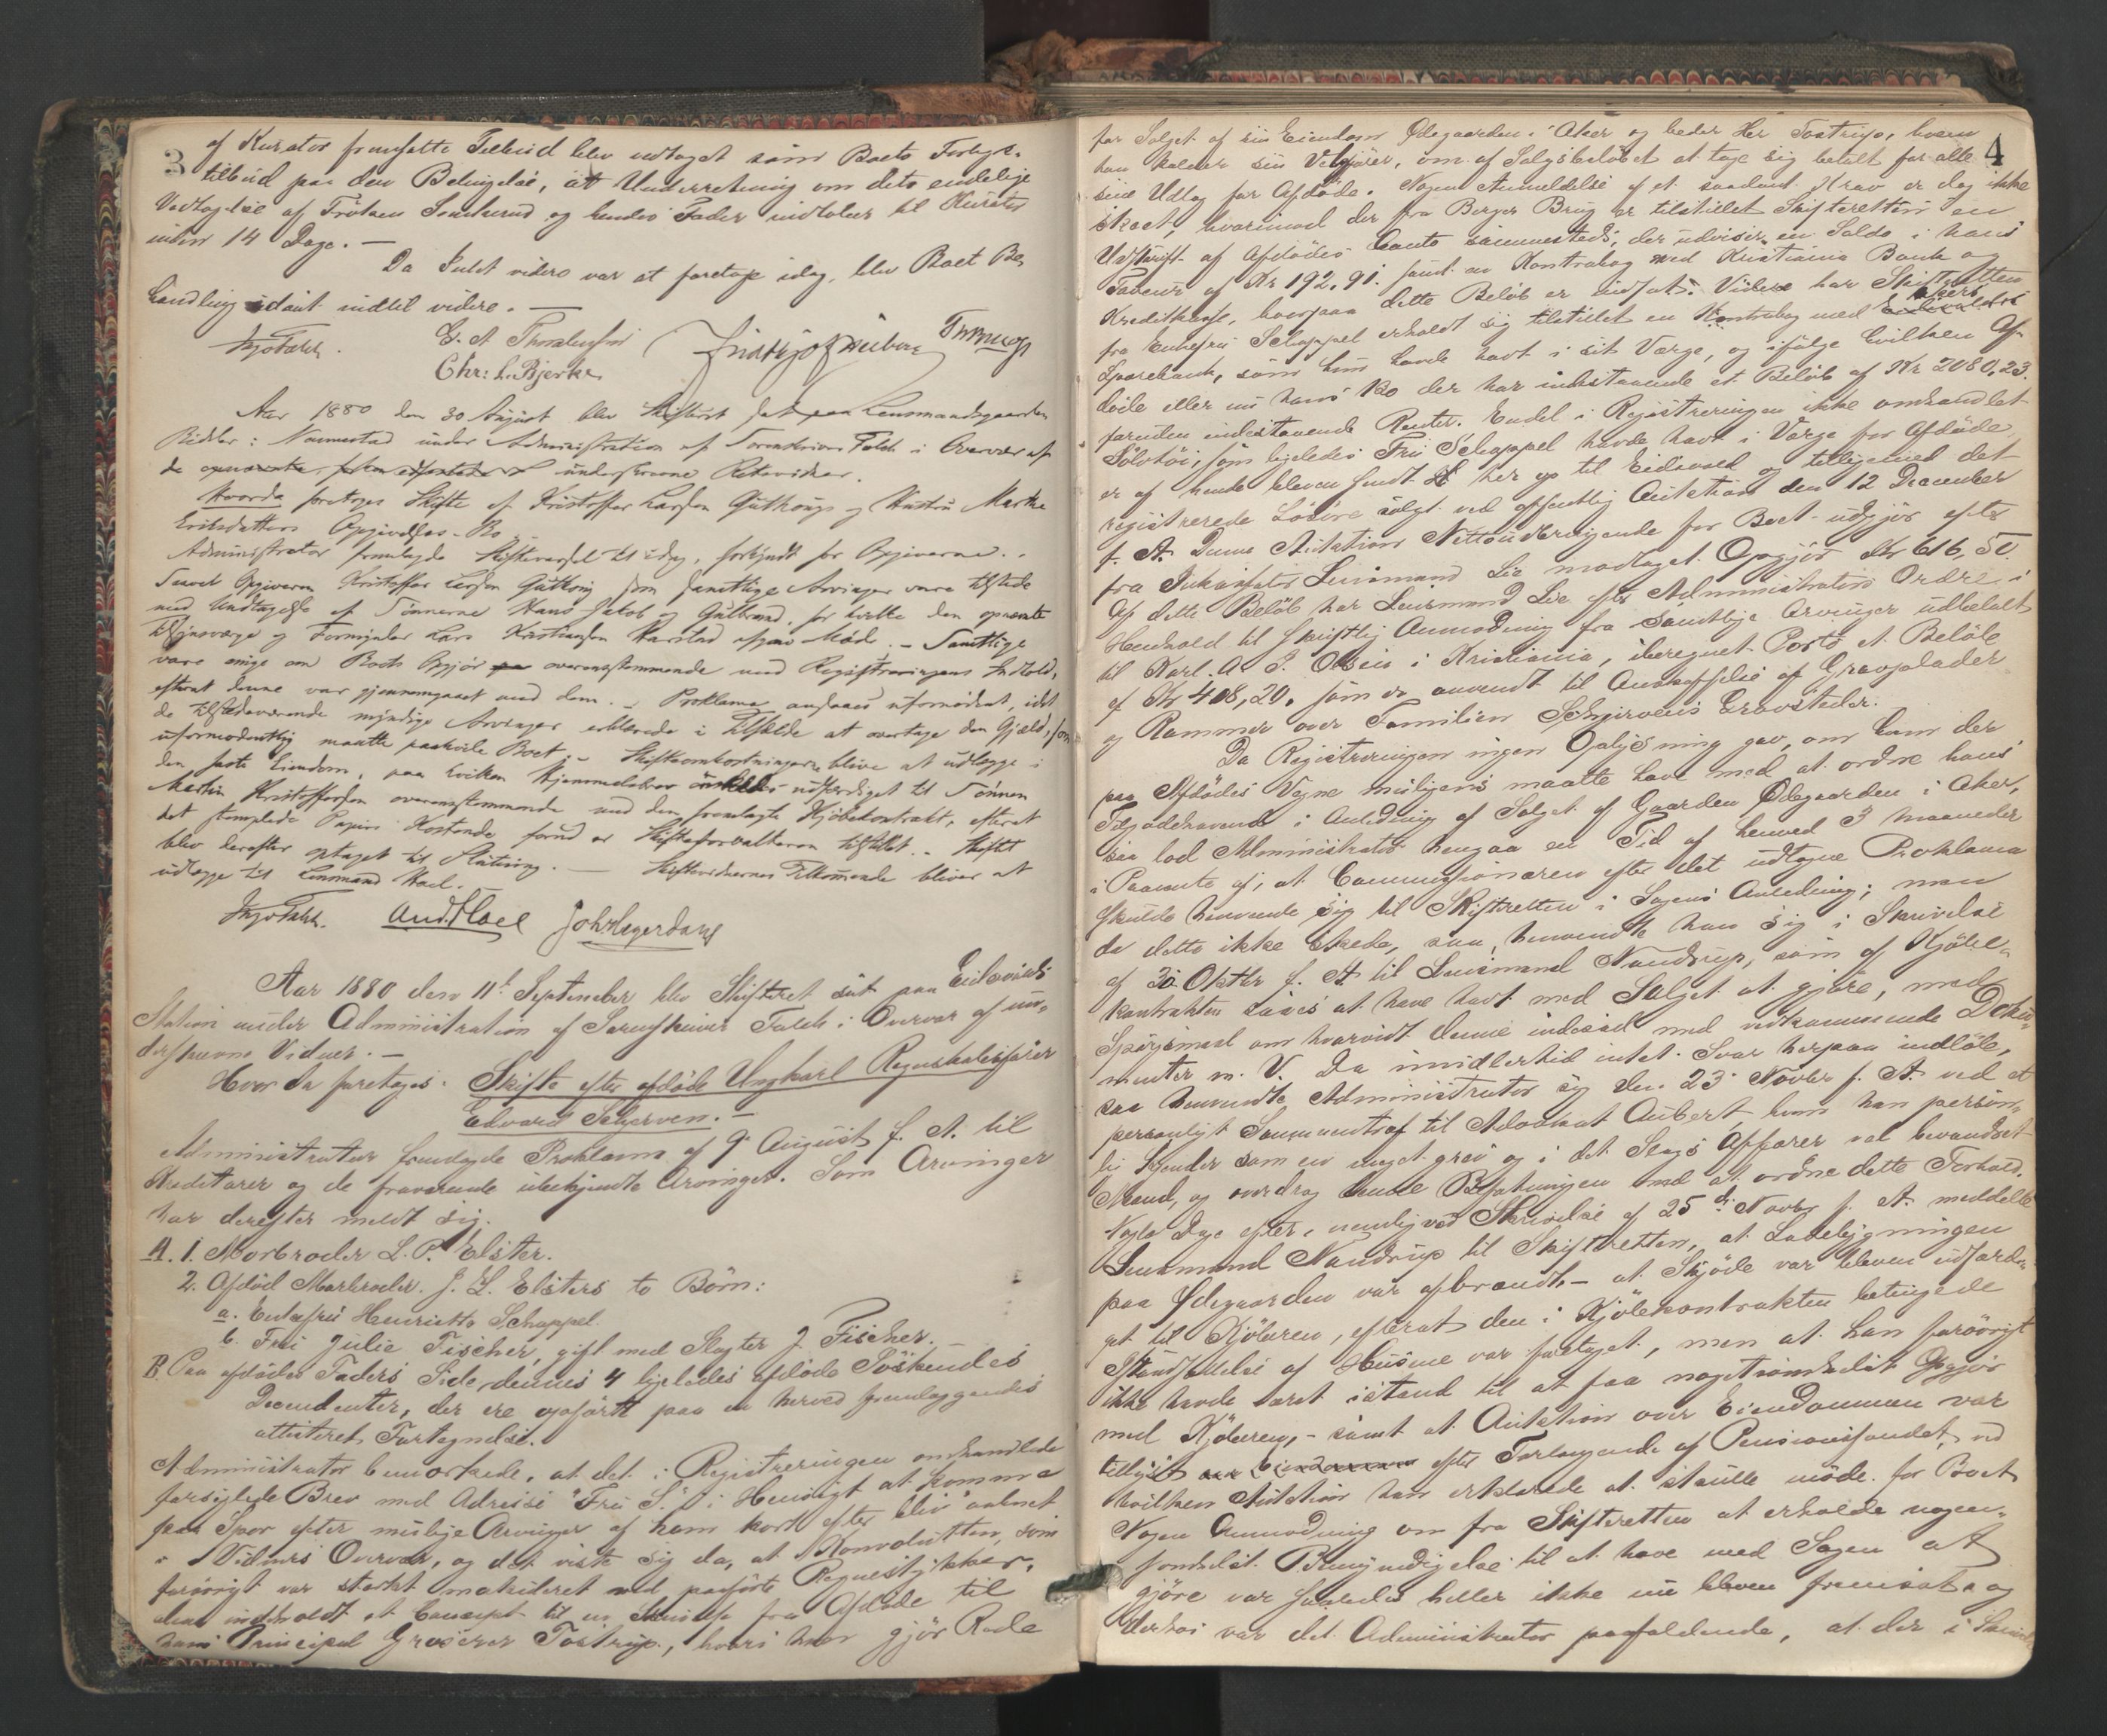 3
af Kurator fremsatte Tilbud blev vedtaget som Boets Forligs-
tilbud paa den Betingelse, at Underretning om dets endelige
Vedtagelse af Frøken og hendes Fader indløber til Kurator
inden 14 Dage. —
Da Intet videre var at foretage idag, blev Boet Be
handling udsat indtil videre. —
Chr: L. Bjerke
Aar 1880 den 30 August blev Skifteret sat paa Lensmandsgaarden
under Administration af Sorenskriver Falch i Overvær af
de underskrevne Retsvidner.
Hvorda foretoges Skifte af Kristoffer Larsen og Hustru Marthe
Eriksdatters Opgivelses-Bo
Administrator fremlagde Skiftevarsel til idag, forkyndt for Opgiverne.
Saavel Opgiveren Kristoffer Larsen som samtlige Arvinger vare tilstede
med Undtagelse af Sønnerne Hans Jakob og Gulbrand, for hvilke den opnævnte
Tilsynsværge og Formynder Lars Kristiansen Harstad afgav Møde. - Samtlige
vare enige om Boets Opgjør overensstemmende med Registreringens Indhold,
efterat denne var gjennemgaaet med dem. - Proklama ansaaes ufornødent, idet
de tilstedeværende myndige Arvinger erklærede i Tilfælde at overtage den Gjæld, som
uformodentlig maatte paahvile Boet. - Skifteomkostningerne blive at udlægge i
den faste Eiendom, paa hvilken Hjemmelsbrev udfærdiget til Sønnen
Martin Kristoffersen overensstemmende med den fremlagte Kjøbekontrakt, efterat
det stemplede Papirs Kostende forud er Skifteforvalteren tilstillet. - Skiftet
blev derefter optaget til Slutning. — Skiftevidnernes Tilkommende bliver at
udlægge til Lensmand Hael.
And. Hael
Aar 1880 den 11t September blev Skifteret sat paa Eidsvolds
Station under Administration af Sorenskriver Falch i Overvær af un-
derskrevne Vidner. —
Hvor da foretoges: Skifte efter afdøde Ungkarl Regnskabsfører
Edvard Schjerven. —
Administrator fremlagde Proklama af 9de August f. A. til
Kreditorer og de fraværende ubekjendte Arvinger. Som Arvinger
har derefter meldt sig.
A. 1. Morbroder L. P. Elster.
2. Afdød Morbroder J. L. Elsters to Børn:
a. Enkefru Henriette Schappel.
b. Fru Julie Fischer, gift med Slagter J. Fischer.
B. Paa afdødes Faders Side, dennes 4 ligeledes afdøde Søskendes
Decendenter, der ere opførte paa en herved fremlæggendes
attesteret Fortegnelse.
Administrator bemærkede, at det i Registreringen omhandlede
forseglede Brev med Adresse "Fru S." i Hensigt at komme
paa Spor efter mulige Arvinger af ham kort efter blev aabnet
i Vidners Overvær, og det viste sig da, at Konvolutten, som
forøvrigt var stærkt makuleret med paaførte Regnestykker,
indeholdt et Concept til en Skrivelse fra Afdøde til
hans Principal Grosserer Tostrup, hvori han gjør Rede
4
for Salget af sin Eiendom Ødegaarden i Aker og beder Her Tostrup, hvem
han kalder sin Velgjører, om af Salgsbeløbet at tage sig betalt for alle
sine Udlæg for Afdøde. Nogen Anmeldelse af et saadant Krav er dog ikke
skeet, hvorimod der fra Berger Brug er tilstillet Skifteretten en
Udskrift af Afdødes Conto sammesteds, der udviser en Saldo i hans
Faveur af Kr 192,91. samt en Kontrabog med Kristiania Bank og
Kreditkasse, hvorpaa dette Beløb er indsat. Videre har Skifteretten
fra Enkefru Schappel erholdt sig tilstillet en Kontrabog med Akers
Sparebank, som hun havde havt i sit Værge, og ifølge hvilken Af-
døde eller nu hans Bo der har indestaaende et Beløb af Kr 2080,23.
foruden indestaaende Renter. Endel i Registreringen ikke omhandlet
Sølvtøi, som ligeledes Fru Schappel havde havt i Værge for Afdøde,
er af hende bleven sendt her op til Eidsvold og tilligemed det
registrerede Løsøre solgt ved offentlig Auktion den 12 December
f. A. Denne Auktions Nettoudbringende for Boet udgjør efter
fra Inkassator Lensmand Lie modtaget Opgjør Kr 616,50.
Af dette Beløb har Lensmand Lie efter Administrators Ordre i
Henhold til skriftlig Anmodning fra samtlige Arvinger udbetalt
til Karl. A. J. Olsen i Kristiania, iberegnet Porto et Beløb
af Kr 408,20, som er anvendt til Anskaffelse af Gravplader
og Rammer over Familien Schjervens Gravsteder.
Da Registreringen ingen Oplysning gav, om hvem der
paa Afdødes Vegne muligens maatte have med at ordne hans
Tilgodehavende i Anledning af Salget af Gaarden Ødegaarden i Aker,
saa lod Administrator hengaa en Tid af henved 3 Maaneder
i Paavente af, at Commissionæren efter det udtagne Proklama
skulde henvende sig til Skifteretten i Sagens Anledning; men
da dette ikke skede, saa henvendte han sig i Skrivelse
af 30 Oktbr f. A. til Lensmand Nandrup, som af Kjøbe-
kontrakten saaes at have havt med Salget at gjøre, med
Spørgsmaal om hvorvidt denne indesad med vedkommende Doku-
menter m. V. Da imidlertid intet Svar herpaa indløb,
saa henvendte Administrator sig den 23 Novbr f. A. ved et
personligt Sammentræf til Advokat Aubert, hvem han person-
lig kjender som en meget grei og i det Slags Affærer vel bevandret
Mand, og overdrog denne Befatningen med at ordne dette Forhold.
Nogle Dage efter, nemlig ved Skrivelse af 25de Novbr f. A. meddelte
Lensmand Nandrup til Skifteretten, at Ladebygningen
paa Ødegaarden var afbrændt, - at Skjøde var bleven udfærdi-
get til Kjøberen, efterat den i Kjøbekontrakten betingede
Istandsættelse af Husene var foretaget, men at han forøvrigt
ikke havde været istand til at faa nogetsomhelst Opgjør
med Kjøberen, - samt at Auktion over Eiendommen var
tillyst efter Forlangende af Pensionsfondet, ved
hvilken Auktion han erklærede at skulle møde for Boet
Nogen Anmodning om fra Skifteretten at erholde nogen-
somhelst Bemyndigelse til at have med Sagen at
gjøre var saaledes heller ikke nu bleven fremsat, og
derhos var det Administrator paafaldende, at der i